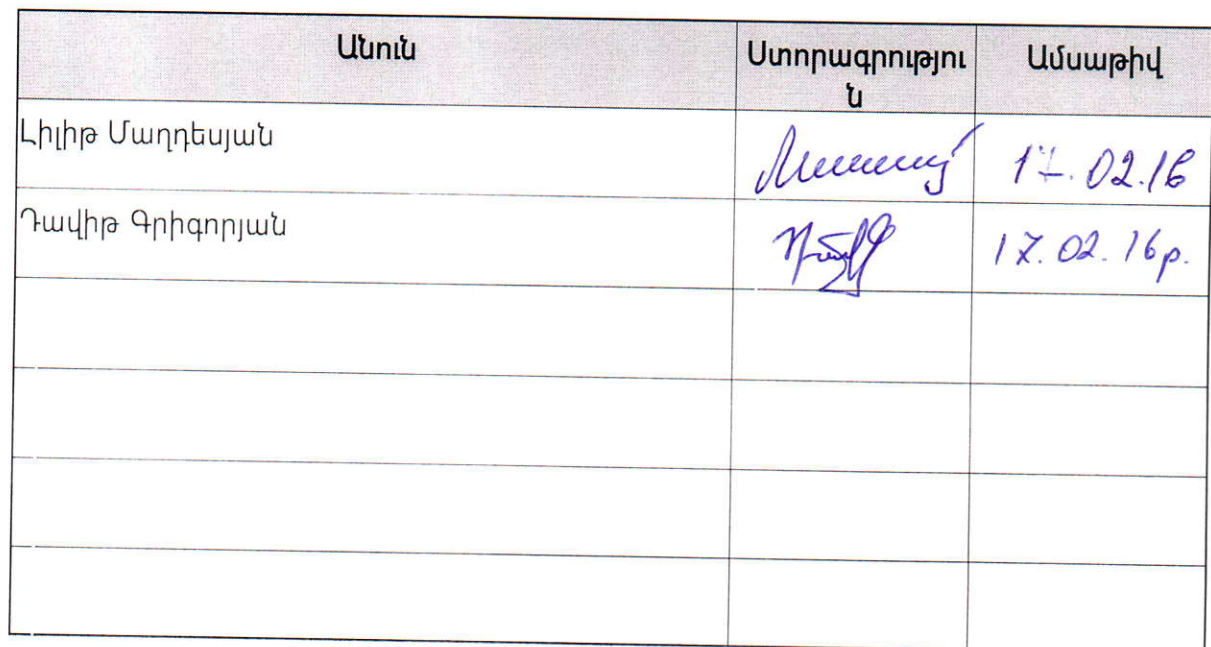 Անուն Ստորագրությու Ամսաթիվ
ն
Լիլիթ Մաղդեսյան 17.02.16
Դավիթ Գրիգորյան 17.02.16թ.